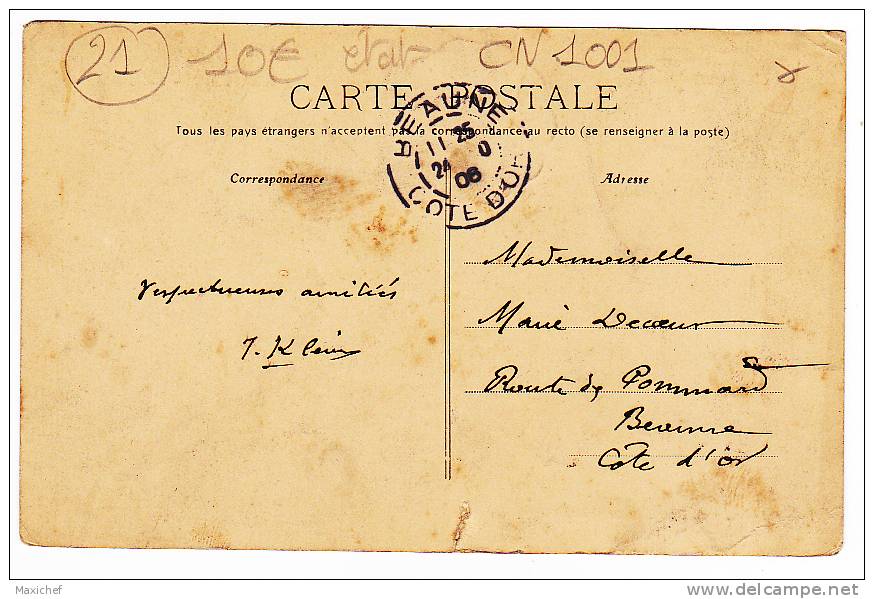 21 10€ état CN 1001
CARTE POSTALE
Tous les pays étrangers n'acceptent pas la correspondance au recto (se renseigner à la poste)
BEAUNE
11 25
24 0
06
COTE D'OR
Correspondance
Adresse
Respectueuses amitiés
J. Klein
Mademoiselle
Marie Decoeur
Route de Pommard
Beaune
Côte d'Or
Maxichef
delcampe.net